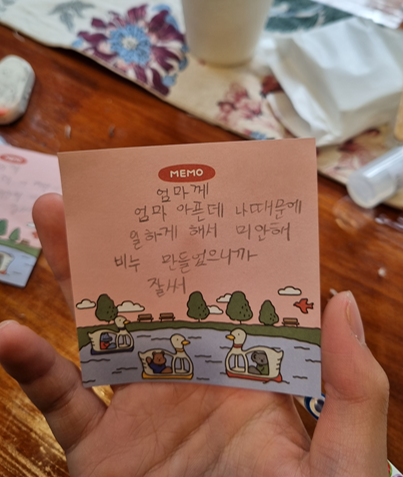 MEMO
엄마게
엄마 아픈데 나때문에
일하게 해서 미안해
비누 만들었으니까
잘써